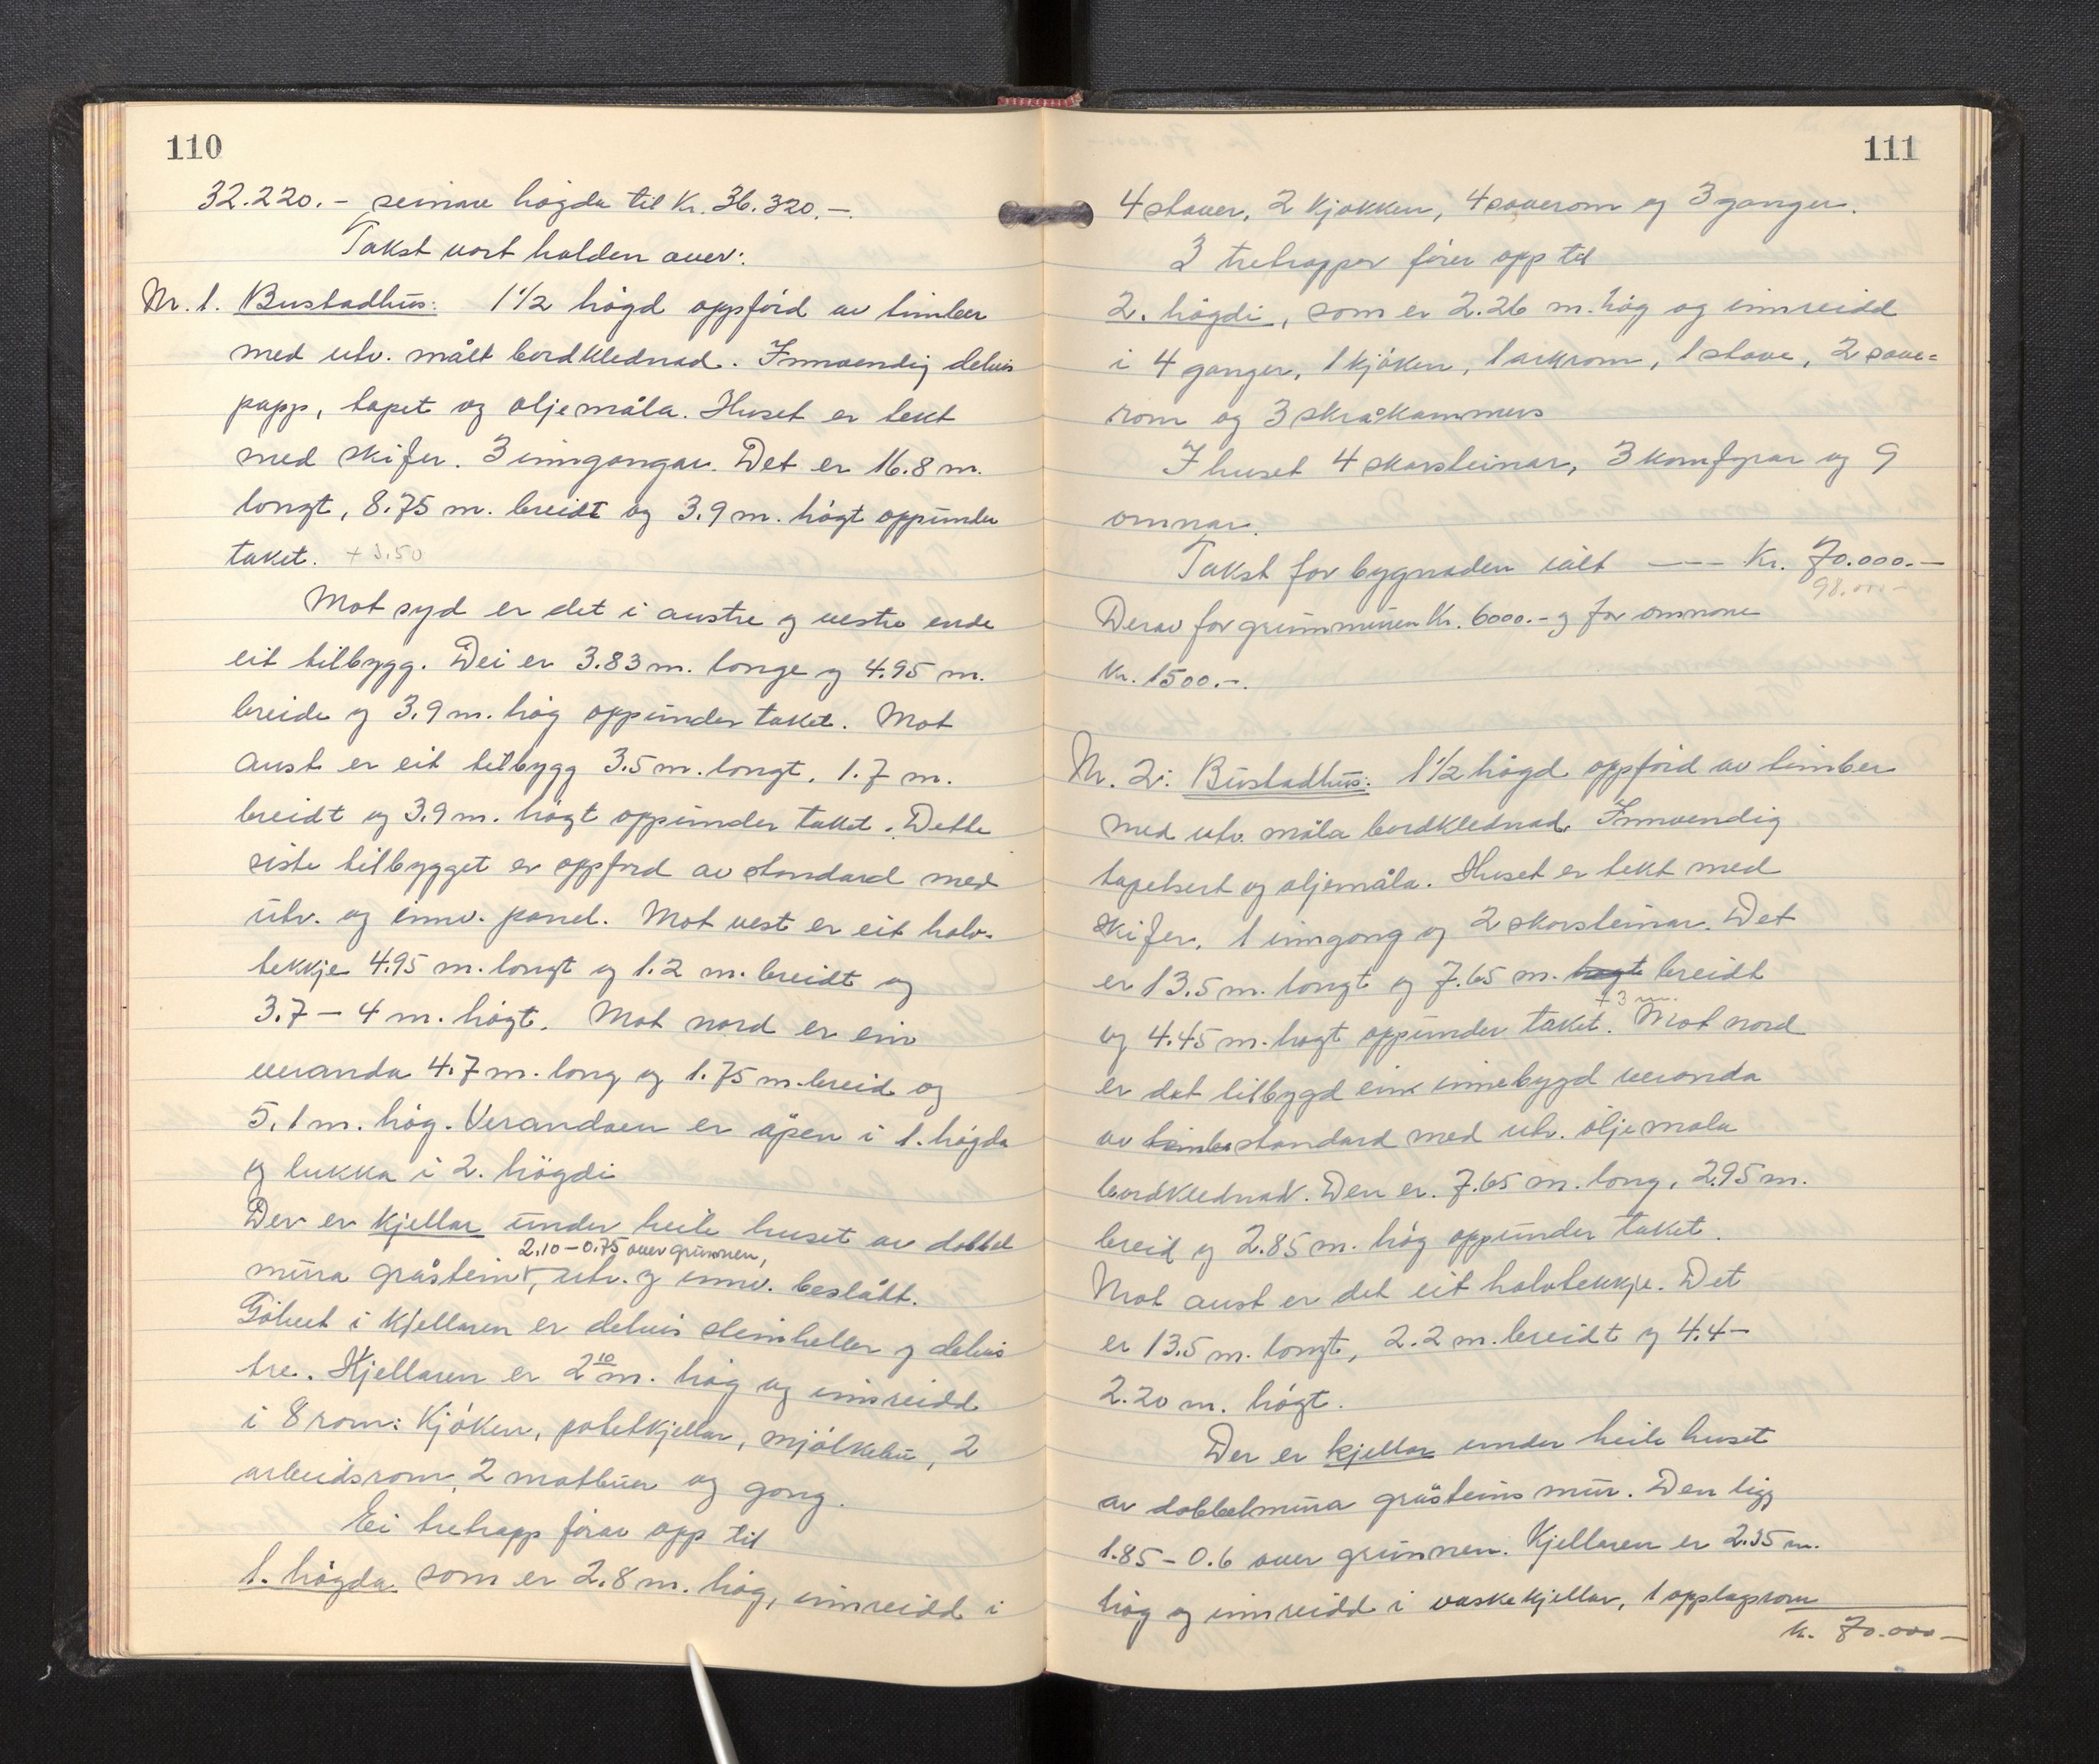 110
32.220.- seinare högda til Kr. 36.320.-
Takst vart halden over:
Nr. 1. Bustadhus: 1 1/2 högd oppförd av timber
med utv. målt bordklednad. Innvendig delvis
papp, tapet og oljemåla. Huset er tekt
med skifer. 3 inngangar. Det er 16.8 m.
langt, 8.75 m. breidt og 3.9 m. högt oppunder
taket. + 3.50
Mot syd er det i austre og vestre ende
eit tilbygg. Dei er 3.83 m. lange og 4.95 m.
breide og 3.9 m. hög oppunder taket. Mot
aust er eit tilbygg 3.5 m. langt, 1.7 m.
breidt og 3.9 m. högt oppunder taket. Dette
siste tilbygget er oppförd av standard med
utv. og innv. panel. Mot vest er eit halv-
tekkje 4.95 m. langt og 1.2 m. breidt og
3.7 - 4 m. högt. Mot nord er ein
veranda 4.7 m. lang og 1.75 m. breid og
5.1 m. hög. Verandaen er åpen i 1. högda
og lukka i 2. högdi
Der er kjellar under heile huset av dobbel
2.10 - 0.75 over grunnen,
mura gråstein, utv. og innv. beslått.
Golvet i kjellaren er delvis steinheller og delvis
tre. Kjellaren er 2 10 m. hög og innreidd
i 8 rom: Kjöken, potetkjellar, mjölkebu, 2
arbeidsrom, 2 matbuer og gang.
Ei tretrapp förar opp til
1. högda som er 2.8 m. hög, innreidd i
111
4 stover, 2 kjökken, 4 soverom og 3 ganger.
3 tretrapper förer opp til
2. högdi, som er 2.26 m. hög og innreidd
i 4 ganger, 1 kjöken, 1 arkrom, 1 stove, 2 sove=
rom og 3 skråkammers
I huset 4 skorsteinar, 3 komfyrar og 9
omnar.
Takst for bygnaden ialt --- Kr. 70.000.-
98.000-
Derav for grunnmuren Kr. 6000.- og for omnane
Kr. 1500.-.
Nr. 2: Bustadhus: 1 1/2 högd oppförd av timber
med utv. måla bordklednad. Innvendig
tapetsert og oljemåla. Huset er tekt med
skifer. 1 inngang og 2 skorsteinar. Det
er 13.5 m. langt og 7.65 m. högt breidt
+ 3 m.
og 4.45 m. högt oppunder taket. Mot nord
er det tilbygd ein innebygd veranda
av timber standard med utv. oljemala
bordklednad. Den er 7.65 m. lang, 2.95 m.
breid og 2.85 m. hög oppunder taket.
Mot aust er det eit halvtekkje. Det
er 13.5 m. langt, 2.2 m. breidt og 4.4 -
2.20 m. högt.
Der er kjellar under heile huset
av dobbelmura gråsteins mur. Den ligg
1.85 - 0.6 over grunnen. Kjellaren er 2.35 m.
hög og innreidd i vaskekjellar, 1 opplagsrom
kr. 70.000-